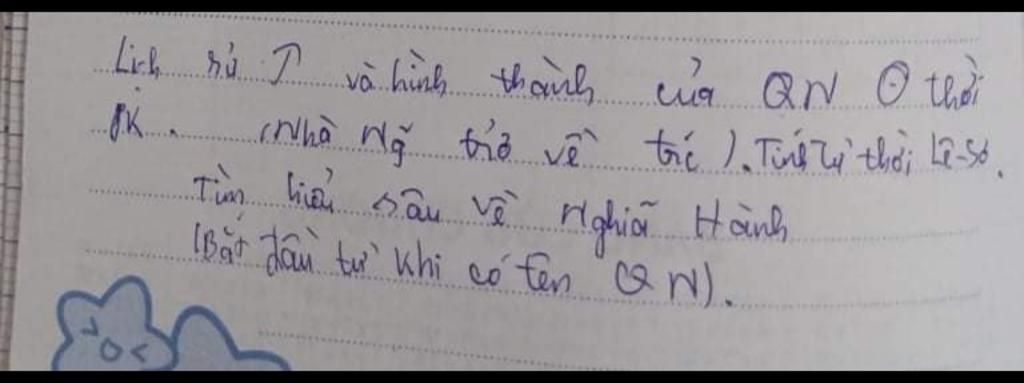 Lịch sử ↑ và hình thành của QN ⊙ thời
PK. (Nhà Ng~ trở về trc). Tính từ thời Lê-Sơ.
Tìm hiểu sâu về Nghĩa Hành
(Bắt đầu từ khi có tên QN).